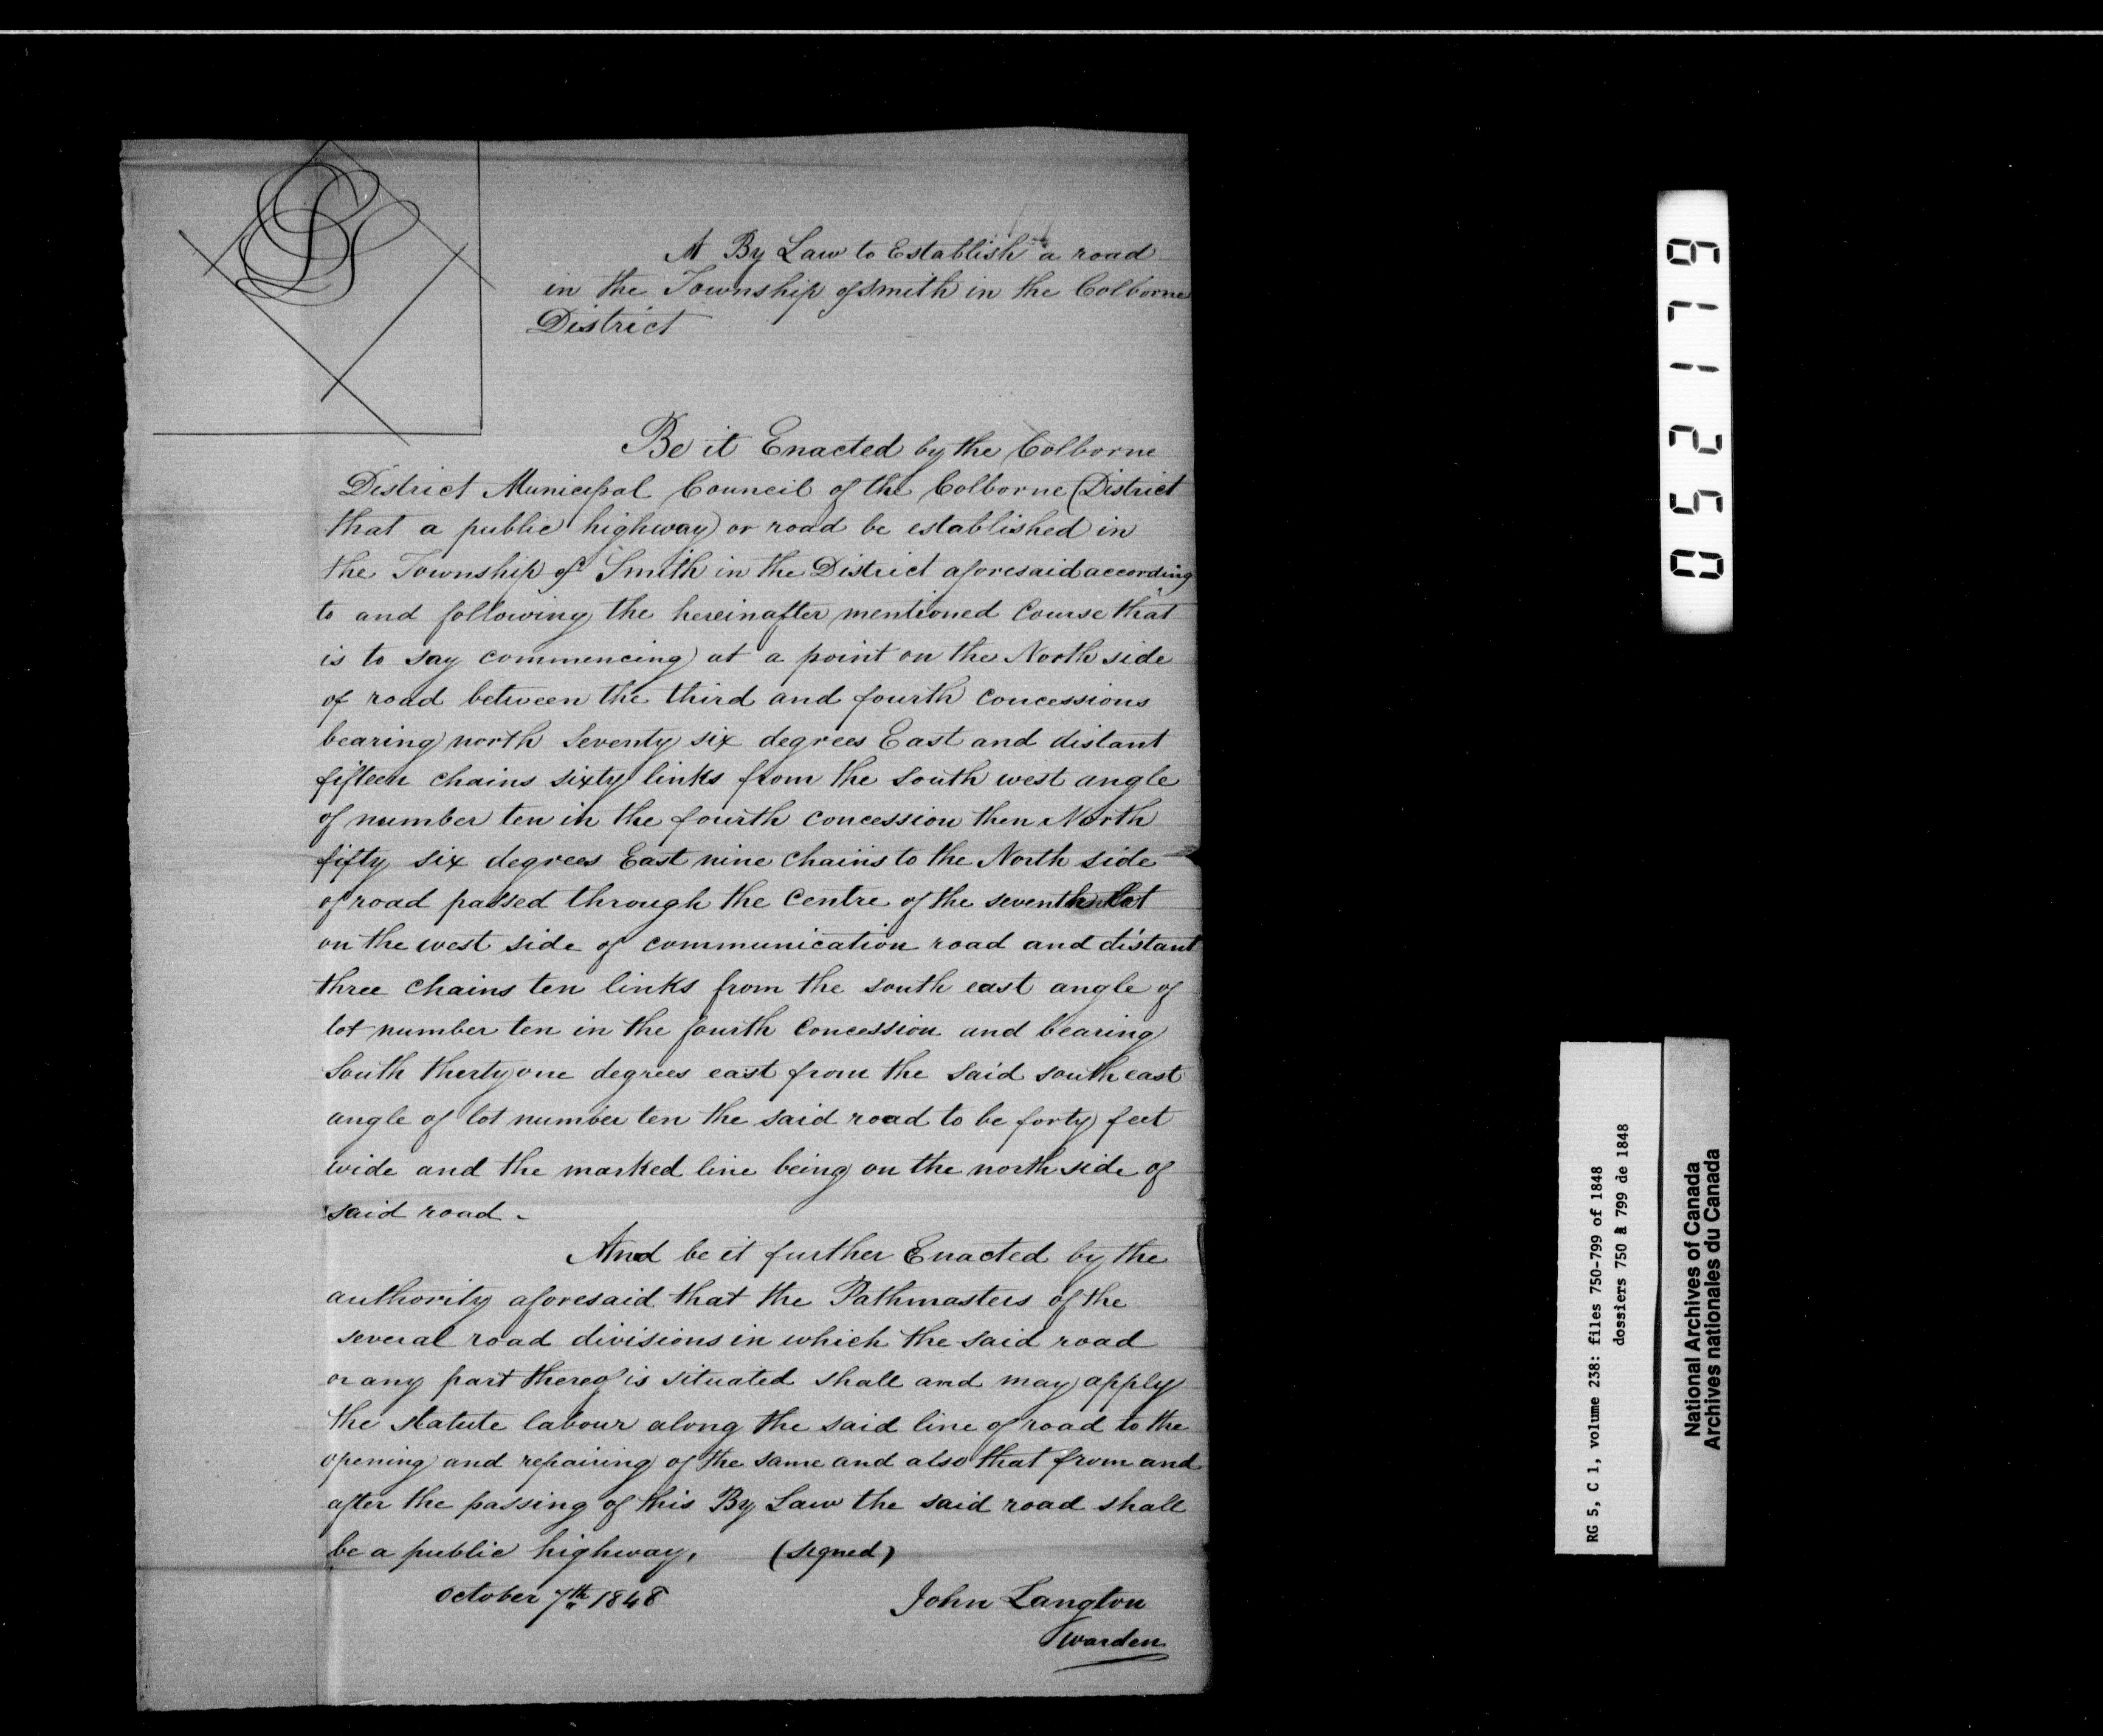 LS
A By Law to Establish a road
in the Township of Smith in the Colborne
District
Be it Enacted by the Colborne
District Municipal Council of the Colborne District
that a public highway or road be established in
the Township of Smith in the District aforesaid according
to and following the hereinafter mentioned Course that
is to say commencing at a point on the North side
of road between the third and fourth concessions
bearing north Seventy six degrees East and distant
fifteen chains sixty links from the south west angle
of number ten in the fourth concession then North
fifty six degrees East nine chains to the North side
of road passed through the Centre of the seventh lot
on the west side of communication road and distant
three chains ten links from the south east angle of
lot number ten in the fourth Concession and bearing
South thirty one degrees east from the said south east
angle of lot number ten the said road to be forty feet
wide and the marked line being on the north side of
said road.
And be it further Enacted by the
authority aforesaid that the Pathmasters of the
several road divisions in which the said road
or any part thereof is situated shall and may apply
the statute labour along the said line of road to the
opening and repairing of the same and also that from and
after the passing of this By Law the said road shall
be a public highway. (signed)
October 7th 1848
John Langton
Warden
052179
RG 5, C 1, volume 238: files 750-799 of 1848
dossiers 750 à 799 de 1848
National Archives of Canada
Archives nationales du Canada